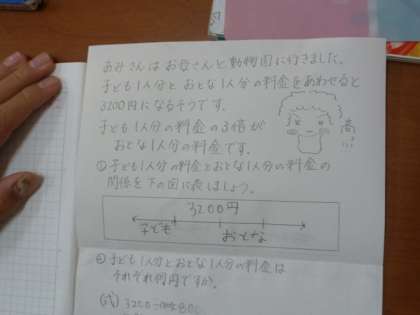 あみさんはお母さんと動物園に行きました。
子ども1人分とおとな1人分の料金をあわせると
3200円になるそうです。
子ども1人分の料金の3倍が
おとな1人分の料金です。
高い!!
①子ども1人分の料金とおとな1人分の料金の
関係を下の図に表しましょう。
3200円
子ども おとな
②子ども1人分とおとな1人分の料金は
それぞれ何円ですか。
(式) 3200